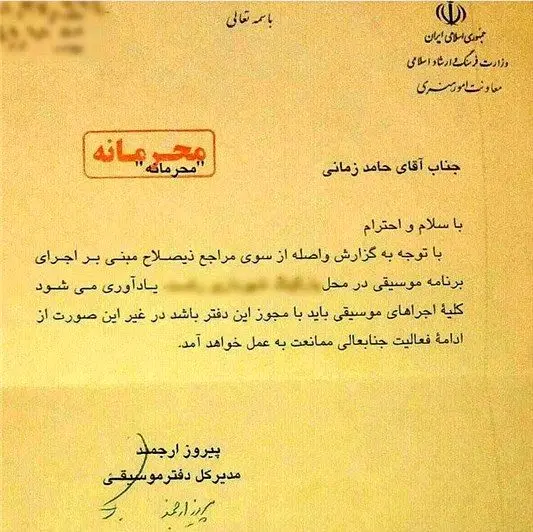 باسمه تعالی
جمهوری اسلامی ایران
وزارت فرهنگ و ارشاد اسلامی
معاونت امور هنری
محرمانه
"محرمانه"
جناب آقای حامد زمانی
با سلام و احترام
با توجه به گزارش واصله از سوی مراجع ذیصلاح مبنی بر اجرای
برنامه موسیقی در محل یادآوری می شود
کلیۀ اجراهای موسیقی باید با مجوز این دفتر باشد در غیر این صورت از
ادامۀ فعالیت جنابعالی ممانعت به عمل خواهد آمد.
پیروز ارجمند
مدیرکل دفتر موسیقی
پیروز ارجمند